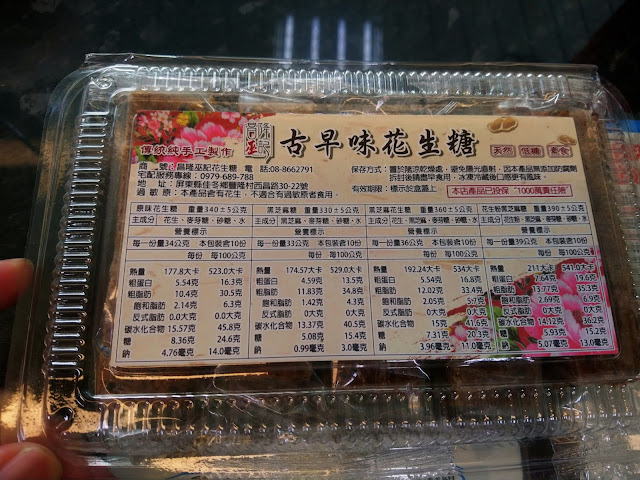 傳統純手工製作
古早味花生糖
天然 低糖 素食
商 號:昌隆巫記花生糖 電 話:08-8662791
宅配服務專線:0979-689-788
地 址:屏東縣佳冬鄉豐隆村西昌路30-22號
過 敏 原:本產品含有花生,不適合有過敏原者食用。
有效期限:標示於盒蓋上。
本店產品已投保 "1000萬責任險"
原味花生糖 重量340±5公克
主成分 花生、麥芽糖、砂糖、水
營養標示
每一份量34公克 本包裝含10份
每份 每100公克
熱量 177.8大卡 523.0大卡
粗蛋白 5.54克 16.3克
粗脂肪 10.4克 30.5克
飽和脂肪 2.14克 6.3克
反式脂肪 0.0大克 0.0大克
碳水化合物 15.57克 45.8克
糖 8.36克 24.6克
鈉 4.76毫克 14.0毫克
黑芝麻糖 重量330±5公克
主成分 黑芝麻、麥芽糖、砂糖、水
營養標示
每一份量33公克 本包裝含10份
每份 每100公克
熱量 174.57大卡 529.0大卡
粗蛋白 4.59克 13.5克
粗脂肪 11.83克 34.8克
飽和脂肪 1.42克 4.3克
反式脂肪 0大克 0大克
碳水化合物 13.37克 40.5克
糖 5.08克 15.4克
鈉 0.99毫克 3.0毫克
黑芝麻花生糖 重量360±5公克
營養標示
每一份量36公克 本包裝含10份
每份 每100公克
熱量 192.24大卡 534大卡
粗蛋白 5.54克 16.8克
粗脂肪 12.02克 33.4克
飽和脂肪 2.05克 5.7克
反式脂肪 0大克 0大克
碳水化合物 15克 41.6克
糖 7.31克 20.3克
鈉 3.96毫克 11.0毫克
花生粉黑芝麻糖 重量390±5公克
營養標示
每一份量39公克 本包裝含10份
每份 每100公克
熱量 211大卡 541.0大卡
粗蛋白 7.64克 19.6克
粗脂肪 13.77克 35.3克
飽和脂肪 2.69克 6.9克
反式脂肪 0大克 0大克
碳水化合物 14.12克 36.2克
糖 5.93克 15.2克
鈉 5.07毫克 13.0毫克